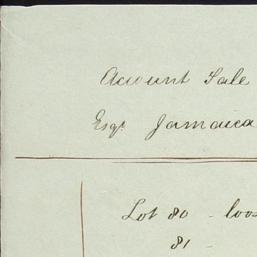 Account Sale
Esqr Jamaica
Lot 80 - loos
81 -